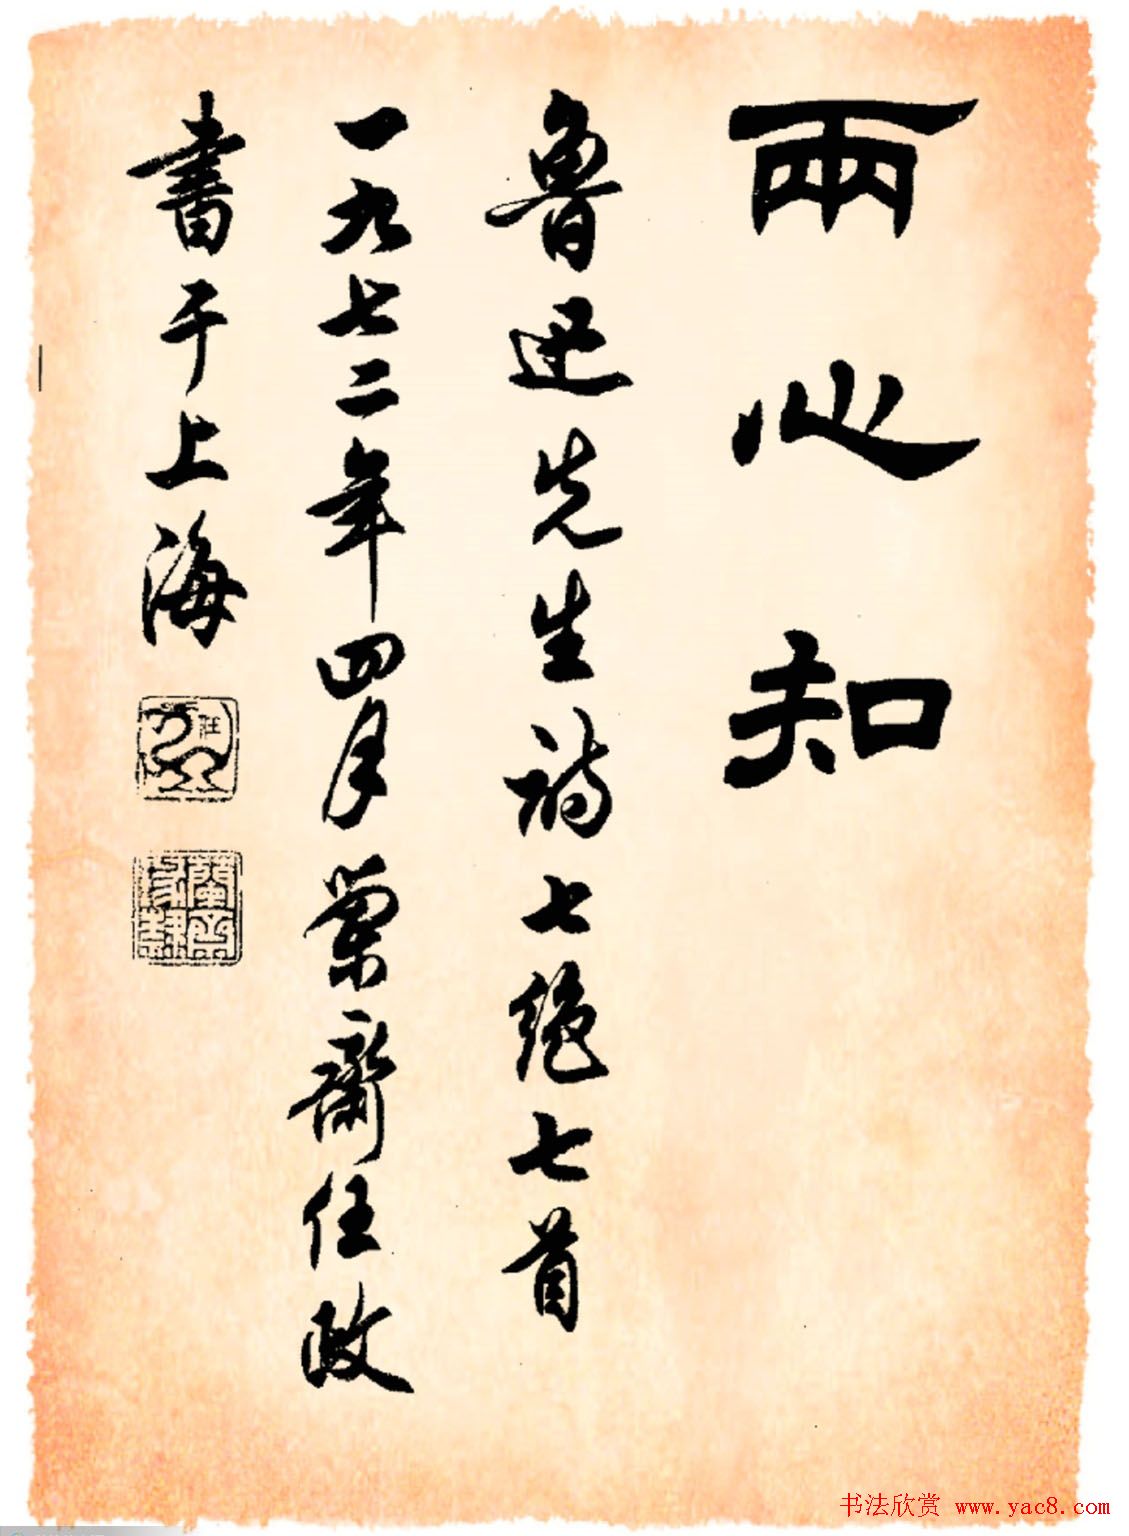 兩心知
魯迅先生诗七絶七首
一九七二年四月蘭齋任政
書于上海
书法欣赏 www.yac8.com